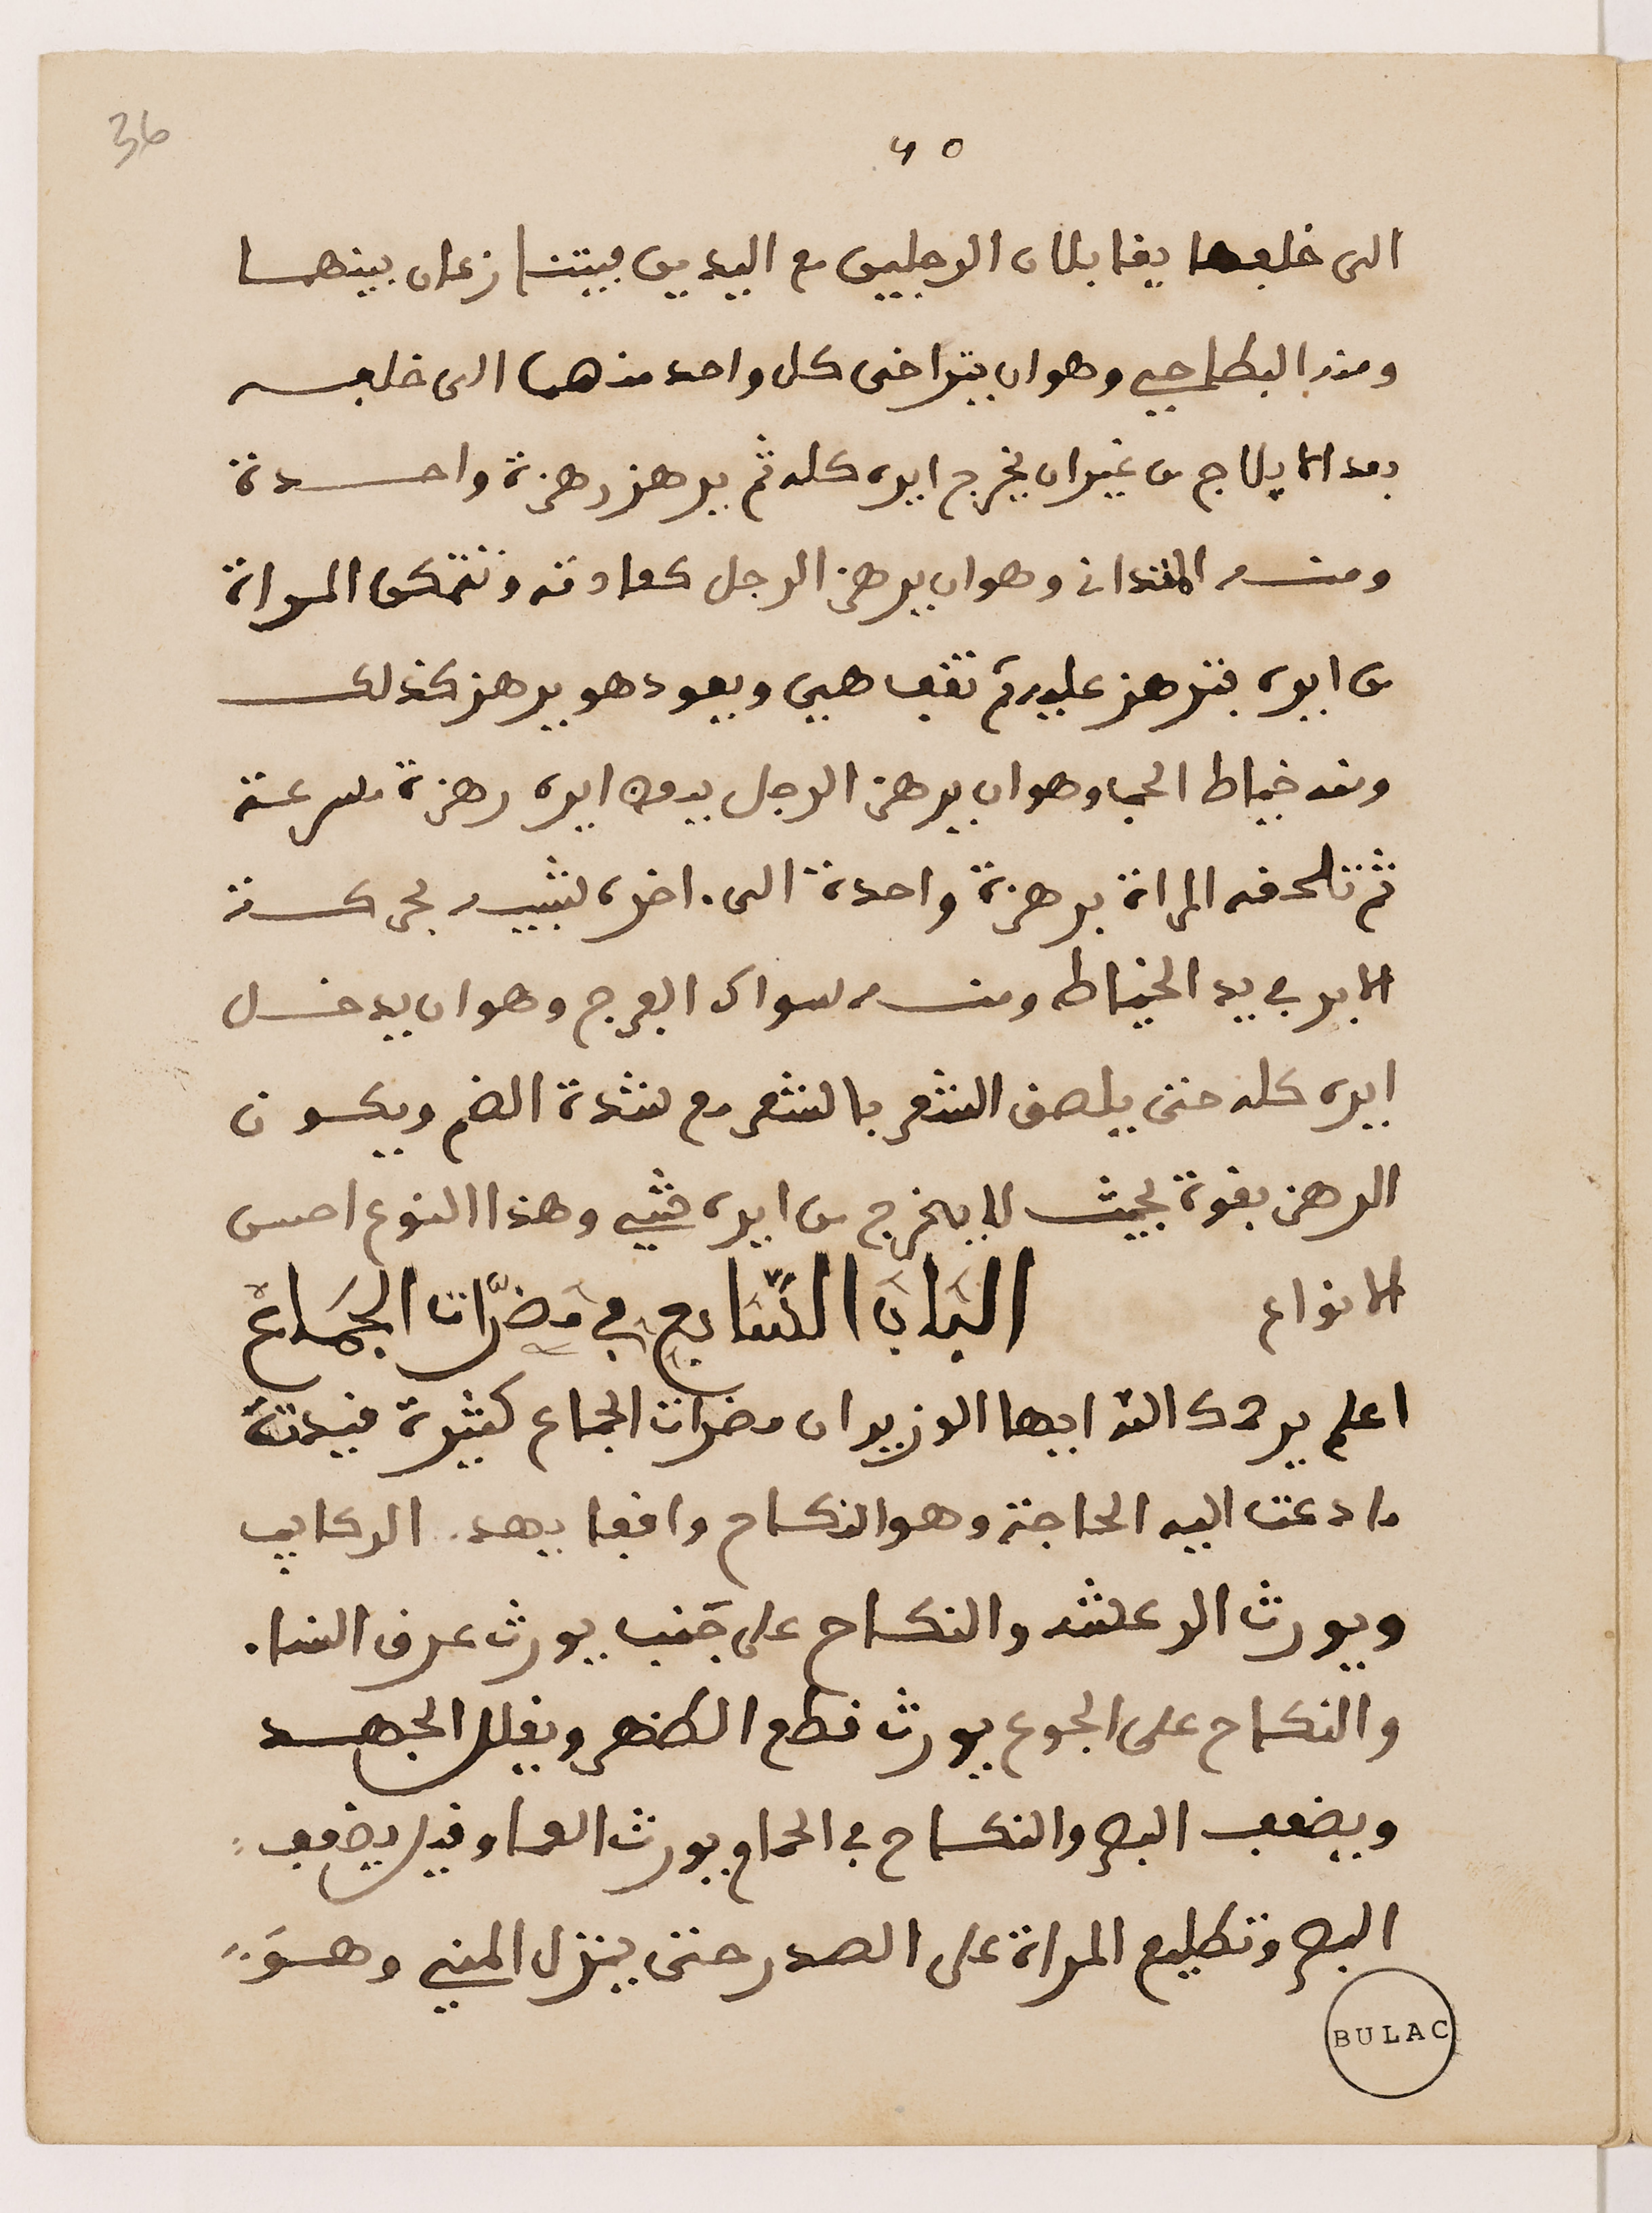 36
٤٥
الى خلفها يقابلان الرجلين مع اليدين فيتنازعان بينهما
ومنه البطاحي وهو ان يتراخى كل واحد منهما الى خلفه
بعد الايلاج من غير ان يخرج ايره كله ثم يرهز رهزة واحدة
ومنه وهو ان يرهز الرجل كعادته وتتمكن المراة
من ايره فترهز عليه ثم تقف هي ويعود هو يرهز كذلك
ومنه خياط الحب وهو ان يرهز الرجل ايره رهزة مسرعة
ثم تلحقه المراة برهزة واحدة الى اخره لشبيه بحركة
الابر في يد الخياط ومنه سواك الفرج وهو ان يدخل
ايره كله حتى يلصق الشعر بالشعر مع شدة الضم ويكون
الرهز بقوة بحيث لا يخرج من ايره شي وهذا النوع احسن
الانواع الباب السّابع في مضرّات الجماع
اعلم يرحمك الله ايها الوزير ان مضرات الجماع كثيرة قيدت
ما دعت اليه الحاجة وهو النكاح واقفا يهد الركايب
ويورث الرعشه والنكاح على جنب يورث عرق النسا
والنكاح على الجوع يورث قطع الظهر ويقلل الجهد
ويضعف البصر والنكاح في الحمام يورث العما وقيل يضعف
البصر وتطليع المراة على الصدر حتى ينزل المني وهو
BULAC